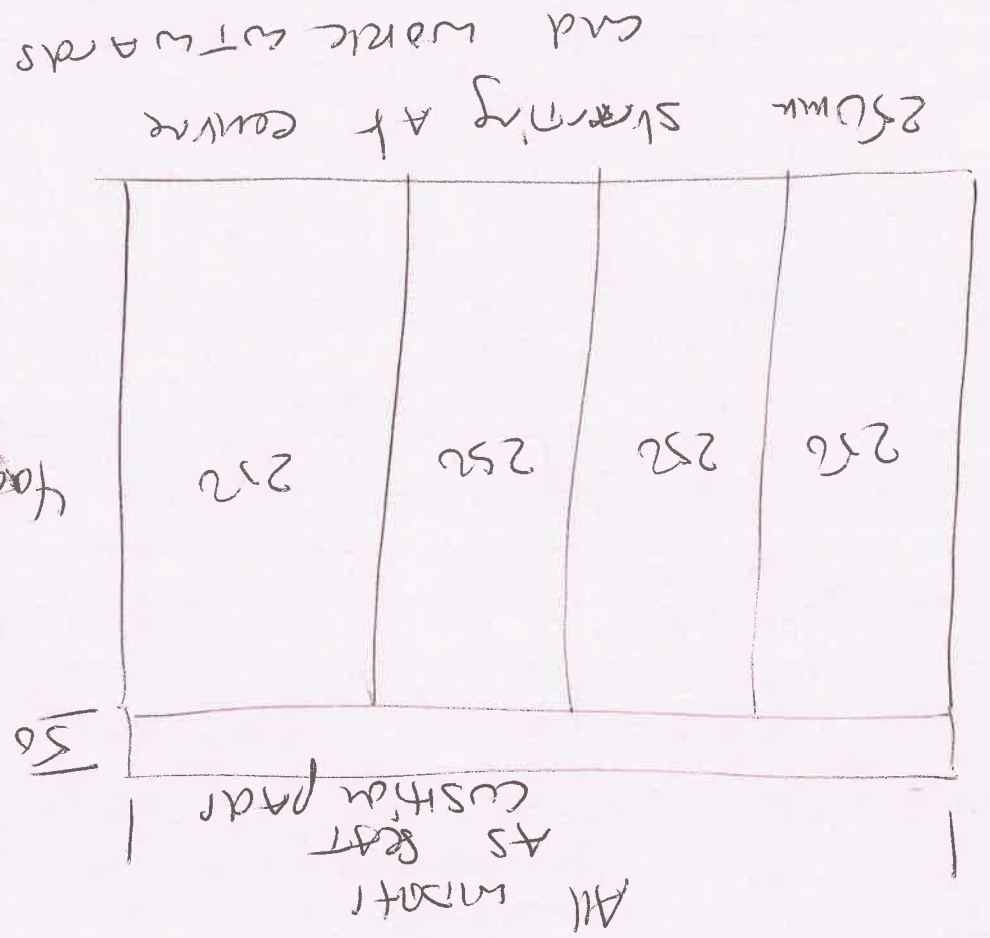 All widths
AS SEAT
cushion pads
50
250 250 250 250
250mm starting At centre
and work outwards